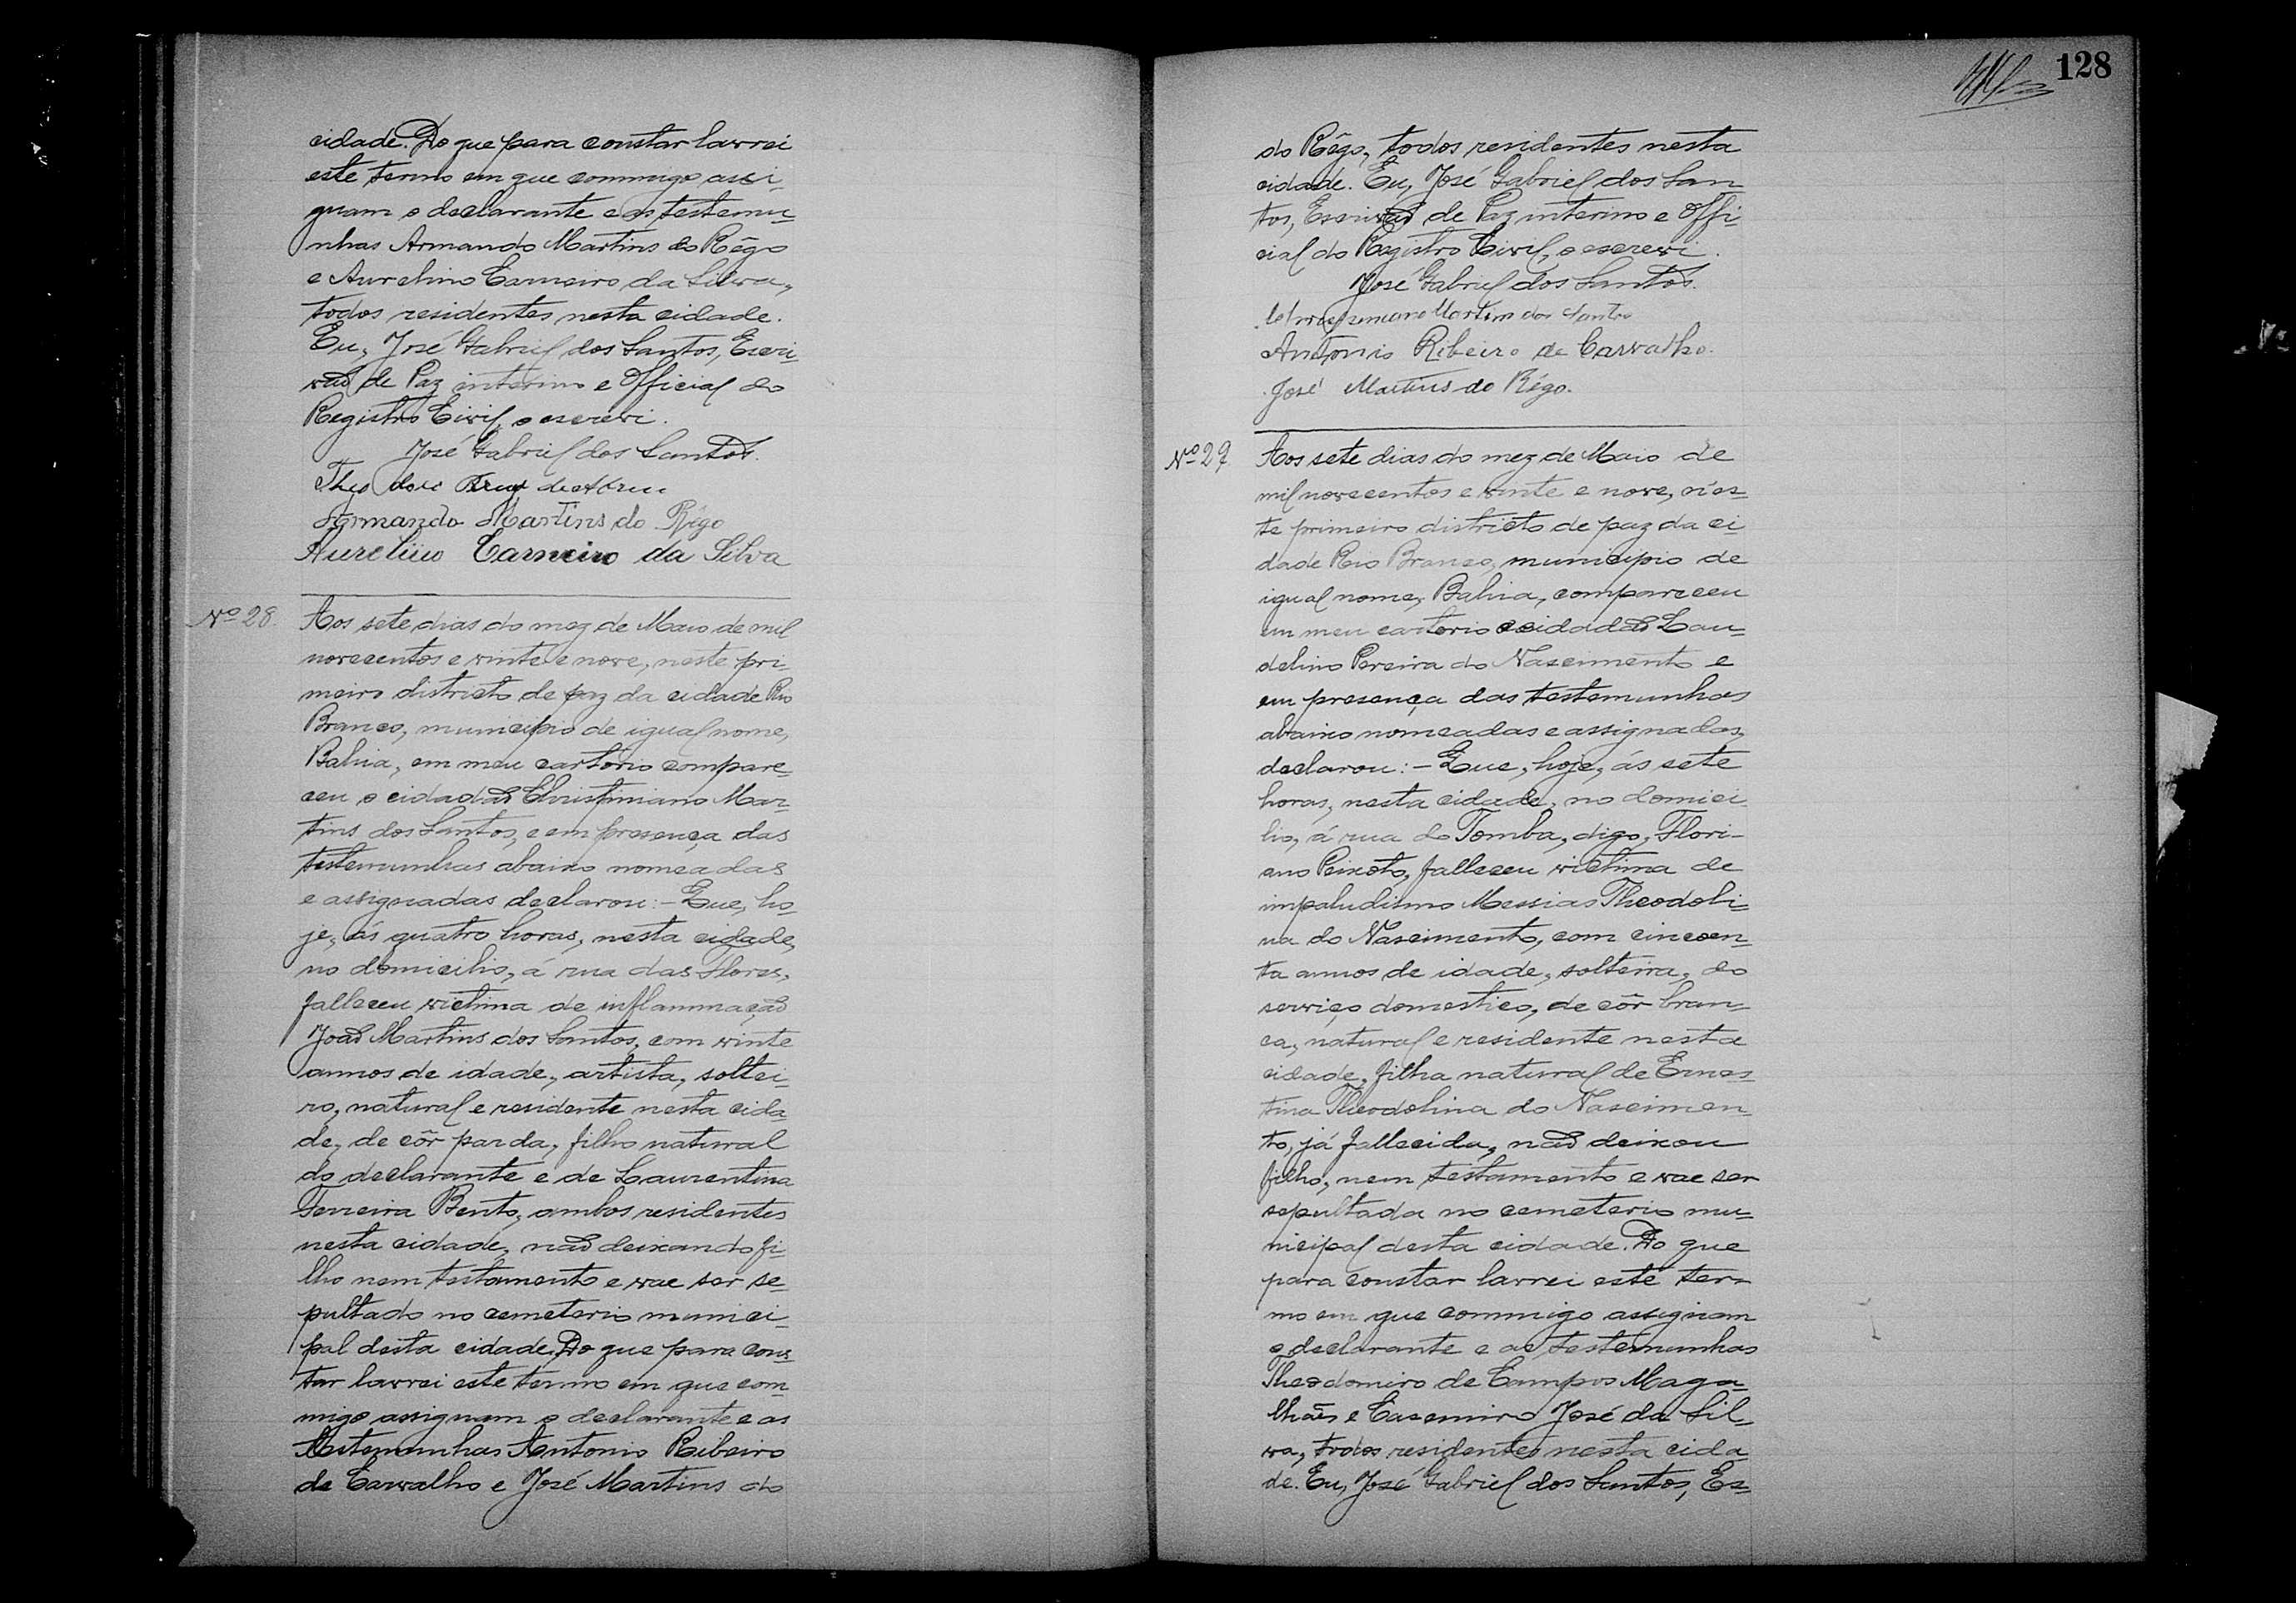 cidade. Do que para constar lavrei
este termo em que commigo assi-
gnam o declarante e as testemu-
nhas Armando Martins do Rêgo
e Aurelino Carneiro da Silva,
todos residentes nesta cidade.
Eu, José Gabriel dos Santos, Escri-
vão de Paz interino e Official do
Registro Civil, o escrevi.
José Gabriel dos Santos.
de Abreu
Armando Martins do Rêgo
Aurelino Carneiro da Silva
Nº 28.
Aos sete dias do mez de Maio de mil
novecentos e vinte e nove, neste pri-
meiro districto de paz da cidade Rio
Branco, municipio de igual nome,
Bahia, em meu cartorio compare-
ceu o cidadão Christiniano Mar-
tins dos Santos, e em presença das
testemunhas abaixo nomeadas
e assignadas declarou:- Que, ho-
je, ás quatro horas, nesta cidade,
no domicilio, á rua das Flores,
falleceu victima de inflammação
João Martins dos Santos, com vinte
annos de idade, artista, soltei-
ro, natural e residente nesta cida-
de, de côr parda, filho natural
do declarante e de Laurentina
Ferreira Bento, ambos residentes
nesta cidade, não deixando fi-
lho nem testamento e vae ser se-
pultado no cemeterio munici-
pal desta cidade. Do que para cons-
tar lavrei este termo em que com-
migo assignam o declarante e as
testemunhas Antonio Ribeiro
de Carvalho e José Martins do
128
do Rêgo, todos residentes nesta
cidade. Eu, José Gabriel dos San-
tos, Escrivão de Paz interino e Offi-
cial do Registro Civil, o escrevi.
José Gabriel dos Santos.
Martins dos Santos
Antonio Ribeiro de Carvalho.
José Martins do Rêgo.
Nº 29.
Aos sete dias do mez de Maio de
mil novecentos e vinte e nove, n'es-
te primeiro districto de paz da ci-
dade Rio Branco, municipio de
igual nome, Bahia, compareceu
em meu cartorio o cidadão Lau-
delino Pereira do Nascimento e
em presença das testemunhas
abaixo nomeadas e assignadas,
declarou:- Que, hoje, ás sete
horas, nesta cidade, no domici-
lio, á rua do Tomba, digo, Flori-
ano Peixoto, falleceu victima de
impaludismo Messias Theodoli-
na do Nascimento, com cincoen-
ta annos de idade, solteira, do
serviço domestico, de côr bran-
ca, natural e residente nesta
cidade, filha natural de Ernes-
tina Theodolina do Nascimen-
to, já fallecida, não deixou
filho, nem testamento e vae ser
sepultada no cemeterio mu-
nicipal desta cidade. Do que
para constar lavrei este ter-
mo em que commigo assignam
o declarante e as testemunhas
Theodomiro de Campos Maga-
lhães e Casemiro José da Sil-
va, todos residentes nesta cida-
de. Eu, José Gabriel dos Santos, Es-